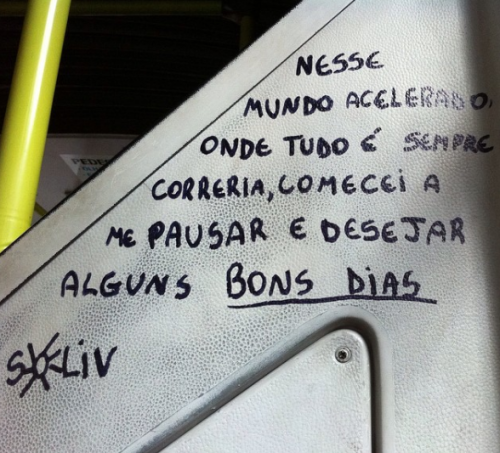 NESSE
MUNDO ACELERADO,
ONDE TUDO É SEMPRE
CORRERIA, COMECEI A
ME PAUSAR E DESEJAR
ALGUNS BONS DIAS
SOLIV